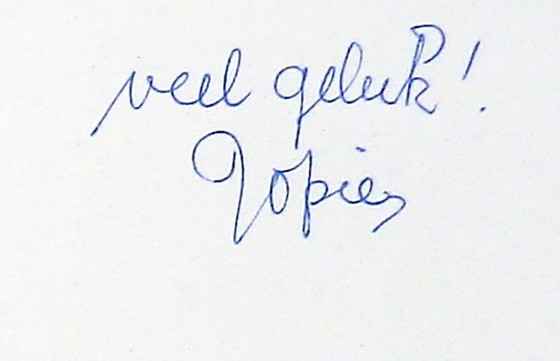 veel geluk!
Jopie,